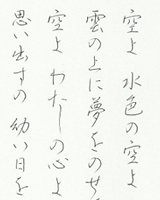 空よ 水色の空よ
雲の上に夢をのせ
空よ わたしの心よ
思い出すの 幼い日を